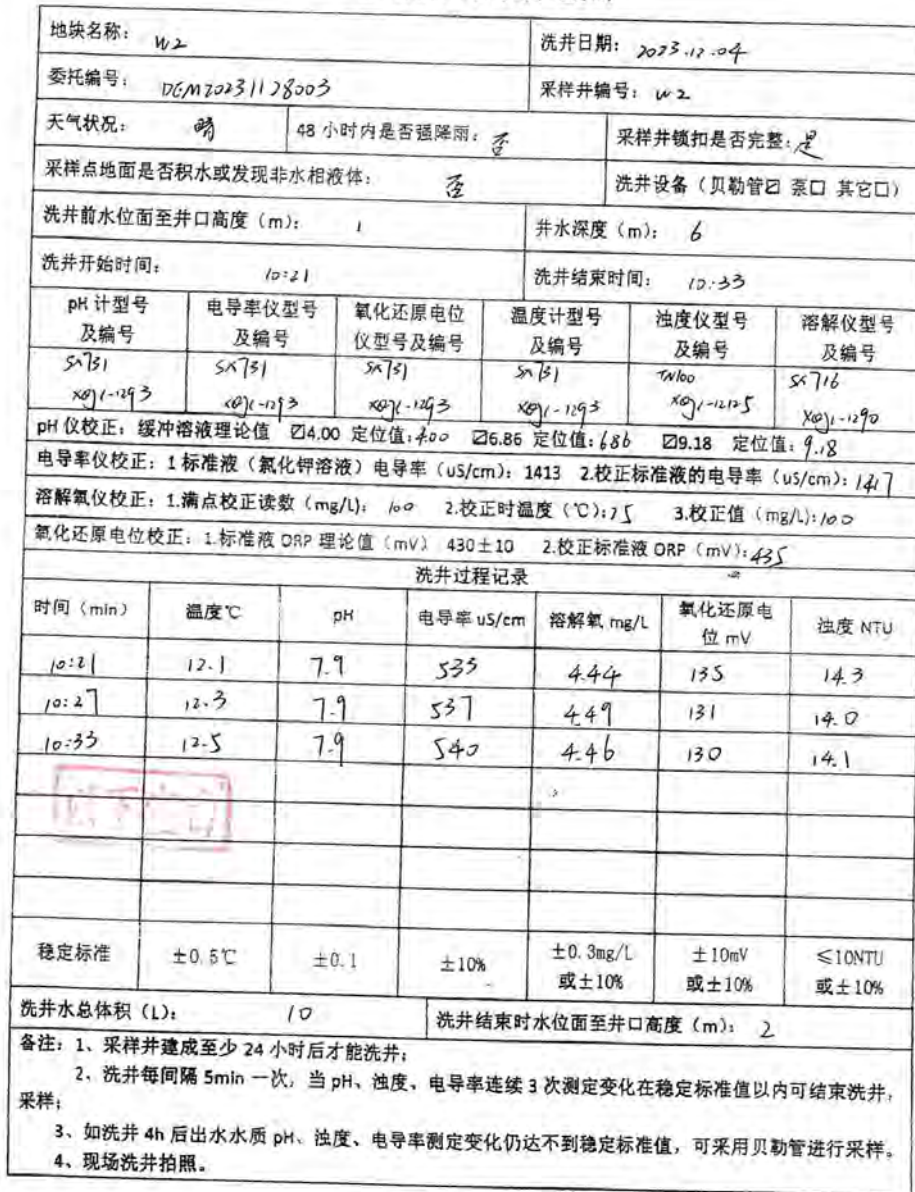 地块名称: W2 洗井日期: 2023.12.04
委托编号: DEM20231128003 采样井编号: W2
天气状况: 晴 48 小时内是否强降雨: 否 采样井锁扣是否完整: 是
采样点地面是否积水或发现非水相液体: 否 洗井设备（贝勒管☑ 泵□ 其它□）
洗井前水位面至井口高度（m）: 1 井水深度（m）: 6
洗井开始时间: 10:21 洗井结束时间: 10:33
pH 计型号 电导率仪型号 氧化还原电位 温度计型号 浊度仪型号 溶解仪型号
及编号 及编号 仪型号及编号 及编号 及编号 及编号
SX731 SX731 SX731 SX731 TN100 SX716
-1293 -1293 -1293 -1293 -1290
pH 仪校正: 缓冲溶液理论值 ☑4.00 定位值: 4.00 ☑6.86 定位值: 6.86 ☑9.18 定位值: 9.18
电导率仪校正: 1 标准液（氯化钾溶液）电导率（uS/cm）: 1413 2.校正标准液的电导率（us/cm）: 1417
溶解氧仪校正: 1.满点校正读数（mg/L): 100 2.校正时温度（℃): 3.校正值（mg/L):
氧化还原电位校正: 1.标准液 ORP 理论值（mV） 430±10 2.校正标准液 ORP（mV): 435
洗井过程记录
时间（min） 温度℃ pH 电导率 uS/cm 溶解氧 mg/L 氧化还原电位 mV 浊度 NTU
10:21 12.1 7.9 535 4.44 135 14.3
10:27 12.3 7.9 537 4.49 131 14.0
10:33 12.5 7.9 540 4.46 130 14.1
稳定标准 ±0.5℃ ±0.1 ±10% ±0.3mg/L ±10mV ≤10NTU
或±10% 或±10% 或±10%
洗井水总体积（L): 10 洗井结束时水位面至井口高度（m): 2
备注: 1、采样井建成至少 24 小时后才能洗井;
2、洗井每间隔 5min 一次, 当 pH、浊度、电导率连续 3 次测定变化在稳定标准值以内可结束洗井,
采样;
3、如洗井 4h 后出水水质 pH、浊度、电导率测定变化仍达不到稳定标准值, 可采用贝勒管进行采样。
4、现场洗井拍照。